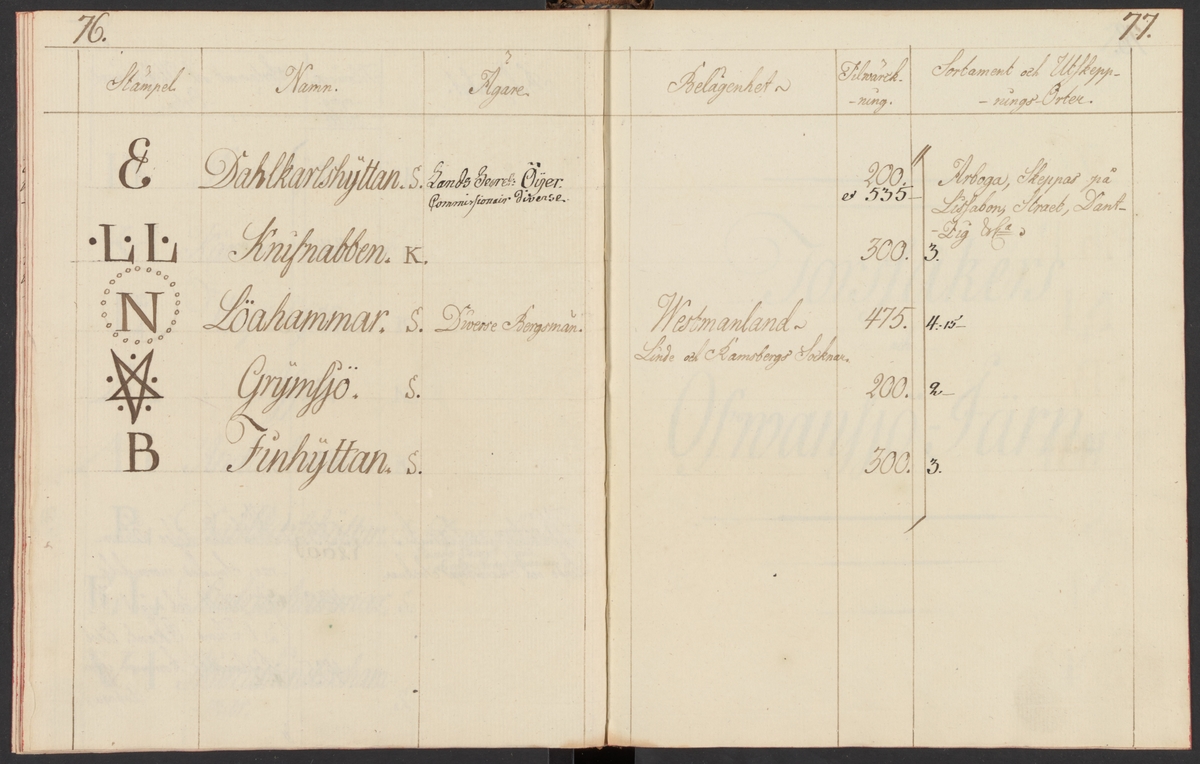 76.
77.
Stämpel
Namn.
Ägare
Belägenhet
Tilwärck-
-ning.
Sortament och Utskepp-
-nings-Orter.
E Dahlkarlshÿttan. S. Lands Secret: Öÿer. 200.
Commissionair Diverse. 535
Arboga, Skeppas på
Lissabon, Straet, Dant-
-Zig
·L·L Knifnabben. K. 300. 3.
N Löahammar. S. Diverse Bergsmän. Westmanland 475. 4-15-
Linde och Ramsbergs Socknar.
Grÿmsjö. S. 200. 2-
B Finhÿttan. S. 300. 3.